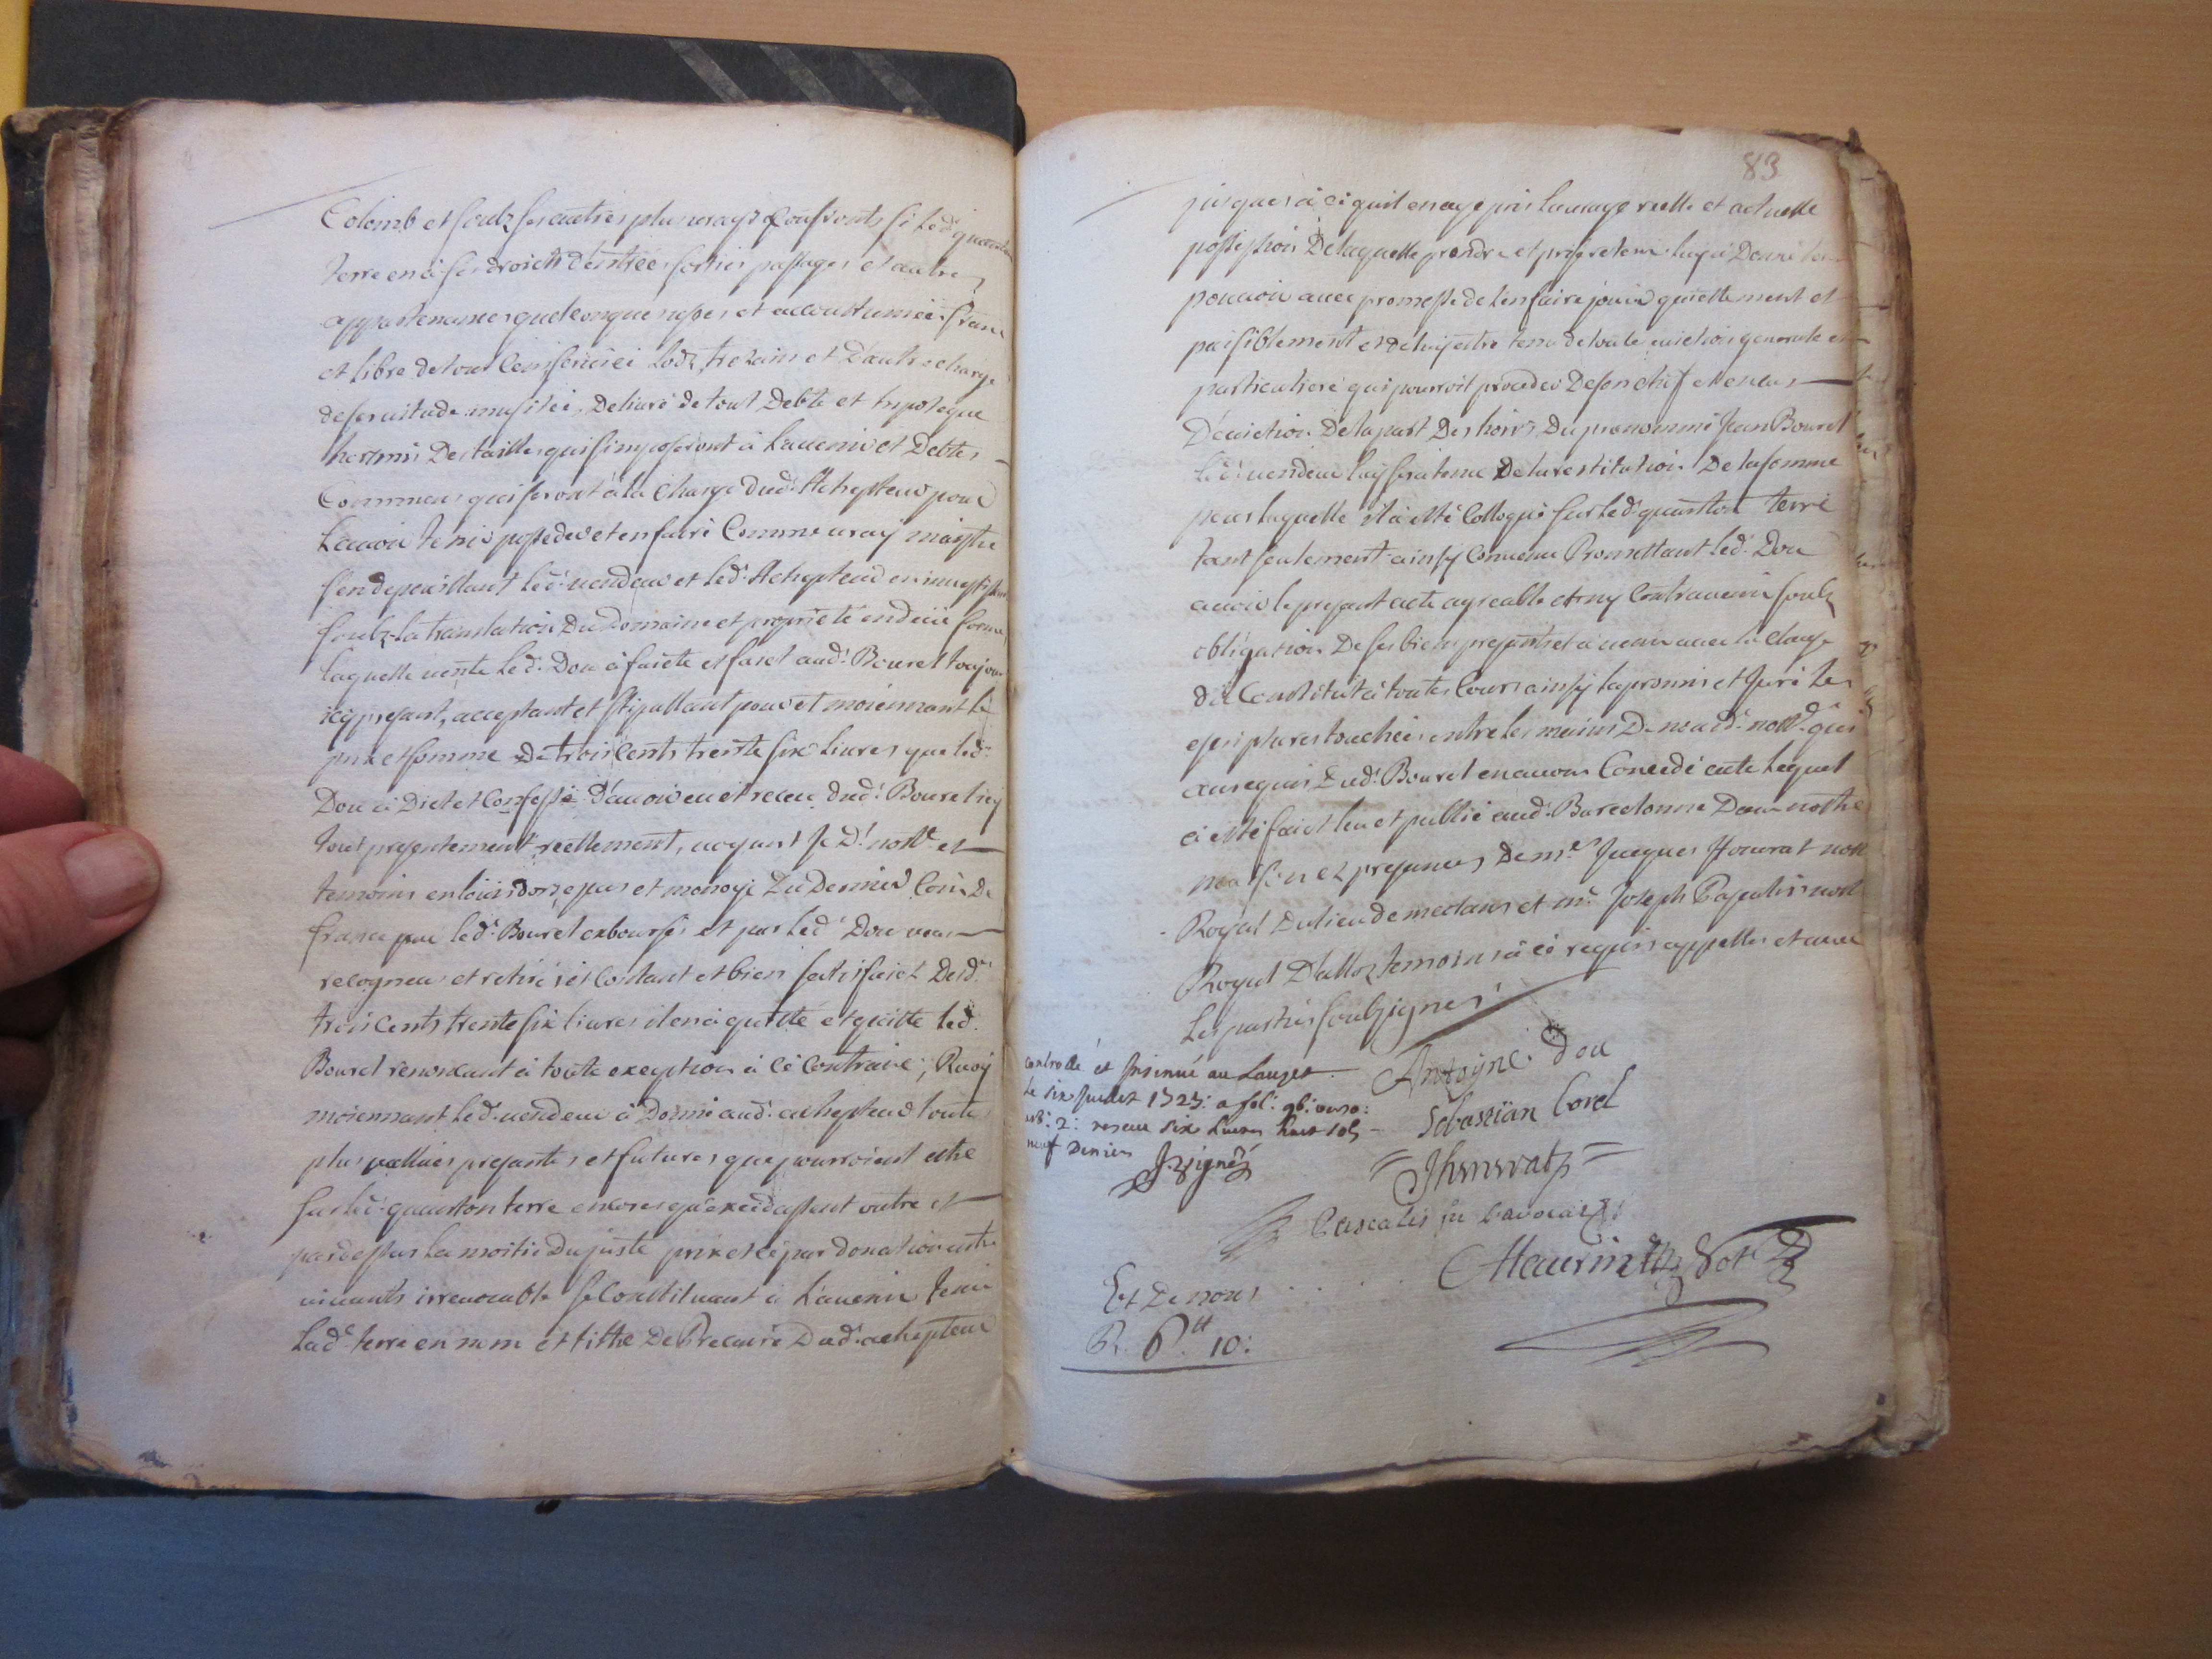 Colomb et soubz ses autres plus vrays Confronts si led. quarton
terre en a ses droicts d'entrées sorties passages et autres
appartenances quelconques uses et accoustumées franc
et libre de tout Cens service Lodz, trezains et D'autre charge
de servitude imposée, Delivré de tout Debte et hipoteque
hormis Des tailles qui s'imposeront à L'avenir et Debtes
Communes qui seront à la Charge dud. Achepteur pour
L'avoir tenir posseder et en faire Comme vray maistre
s'en depouillant led. vendeur et led. Achepteur en investissant
soubz la translation Du Domaine et proprieté en deüe forme
laquelle vente led. Dou a faicte et faict aud. Bourel toujours
icy present, acceptant et stipullant pour et moiennant le
prix et somme De trois Cents trente six Livres que led.
Dou a Dict et Confessé D'avoir eu et receu dud. Bourel icy
tout presentement reellement, voyant Je D. nott.e et
temoins en louis dors, ecus et monoye Du Dernier Coin De
france par led. Bourel exboursés et par led. Dou
recogneu et retiré et Contant et bien satisfaict Desd.
trois Cents trente six livres il en a quitté et quitte led.
Bourel renonceant à toute exception à ce Contraire, Quoy
moiennant led. vendeur a Donné aud. achepteur toutes
plus vallües presantes et futures que pourroient estre
sur led. quarton terre encores qu'excedassent outre et
par dessus La moitié Du juste prix et ce par donation entre
vivants irrevocable se Constituant à L'avenir tenir
Lad. terre en nom et tittre De Precaire Dud. achepteur
83
jusques à ce quil en aye pris La vraye reelle et actuelle
possession De laquelle prendre et prise retenir luy a Donné tout
pouvoir avec promesse de l'en faire jouir quiettement et
paisiblement et de luy estre tenu de toute eviction generale et
particuliere qui pourroit proceder De son chef et en cas
D'eviction De la part Des hoirs Du prenommé Jean Bourel
led. vendeur luy sera tenu De la restitution De la somme
pour laquelle il a esté Colloqué sur led. quarton terre
tant seulement ainsy Convenu Promettant led. Dou
avoir le present acte agreable et n'y Contrevenir soubz
obligation De ses biens presents et à venir avec la clause
de Constitut à toutes Cours ainsy la promis et Juré les
escriptures touchées entre les mains De nous d. nott.e qui
au requis Dud. Bourel en avons Concedé acte Lequel
a esté faict leu et publié aud. Barcelonne Dans nostre
maison ez presences De m.e Jacques nott.e
Royal Du lieu de meolans et m.e Joseph Pascalis nott.e
Royal D'alloz temoins à ce requis appellés et avec
Les parties soubzsignés
controllé et Insinué au Lauzet
Le six Juillet 1723: a fol: 96: verso:
reseu six Livres huit sols
neuf Deniers
Antoyne Dou
Sebastian Borel
Pascalis
Maurin Not
Et De nous
R. 6.tt 10: